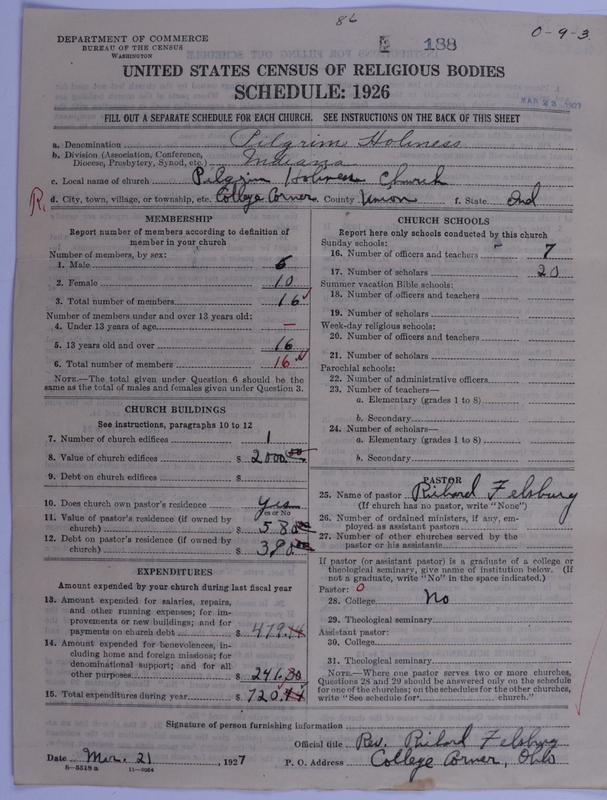 86
0-9-3
188
DEPARTMENT OF COMMERCE
BUREAU OF THE CENSUS
WASHINGTON
UNITED STATES CENSUS OF RELIGIOUS BODIES
SCHEDULE: 1926
MAR 23 1927
FILL OUT A SEPARATE SCHEDULE FOR EACH CHURCH. SEE INSTRUCTIONS ON THE BACK OF THIS SHEET
a. Denomination Pilgrim Holiness
b. Division (Association, Conference, Diocese, Presbytery, Synod, etc.) Indiana
c. Local name of church Pilgrim Holiness Church
R. d. City, town, village, or township, etc. College Corner County Union f. State Ind
MEMBERSHIP
Report number of members according to definition of
member in your church
Number of members, by sex:
1. Male 6
2. Female 10
3. Total number of members 16
Number of members under and over 13 years old:
4. Under 13 years of age —
5. 13 years old and over 16
6. Total number of members 16
NOTE.—The total given under Question 6 should be
same as the total of males and females given under Question 3.
CHURCH BUILDINGS
See instructions, paragraphs 10 to 12
7. Number of church edifices 1
8. Value of church edifices $ 2000.00
9. Debt on church edifices $
10. Does church own pastor's residence Yes
Yes or No
11. Value of pastor's residence (if owned by
church) $ 580.00
12. Debt on pastor's residence (if owned by
church) $ 380.00
EXPENDITURES
Amount expended by your church during last fiscal year
13. Amount expended for salaries, repairs,
and other running expenses; for im-
provements or new buildings; and for
payments on church debt $ 479.14
14. Amount expended for benevolences, in-
cluding home and foreign missions; for
denominational support; and for all
other purposes $ 241.30
15. Total expenditures during year $ 720.44
CHURCH SCHOOLS
Report here only schools conducted by this church
Sunday schools:
16. Number of officers and teachers 7
17. Number of scholars 20
Summer vacation Bible schools:
18. Number of officers and teachers
19. Number of scholars
Week-day religious schools:
20. Number of officers and teachers
21. Number of scholars
Parochial schools:
22. Number of administrative officers
23. Number of teachers—
a. Elementary (grades 1 to 8)
b. Secondary
24. Number of scholars—
a. Elementary (grades 1 to 8)
b. Secondary
PASTOR
25. Name of pastor Richard Felsburg
(If church has no pastor, write "None")
26. Number of ordained ministers, if any, em-
ployed as assistant pastors
27. Number of other churches served by the
pastor or his assistants
If pastor (or assistant pastor) is a graduate of a college or
theological seminary, give name of institution below. (If
not a graduate, write "No" in the space indicated.)
Pastor: 0
28. College No
29. Theological seminary
Assistant pastor:
30. College
31. Theological seminary
NOTE.—Where one pastor serves two or more churches,
Questions 28 and 29 should be answered only on the schedule
for one of the churches; on the schedules for the other churches,
write "See schedule for church."
Signature of person furnishing information
Official title Rev. Richard Felsburg
Date Mar. 21, 1927 P. O. Address College Corner, Ohio
8—5518 a 11—9064